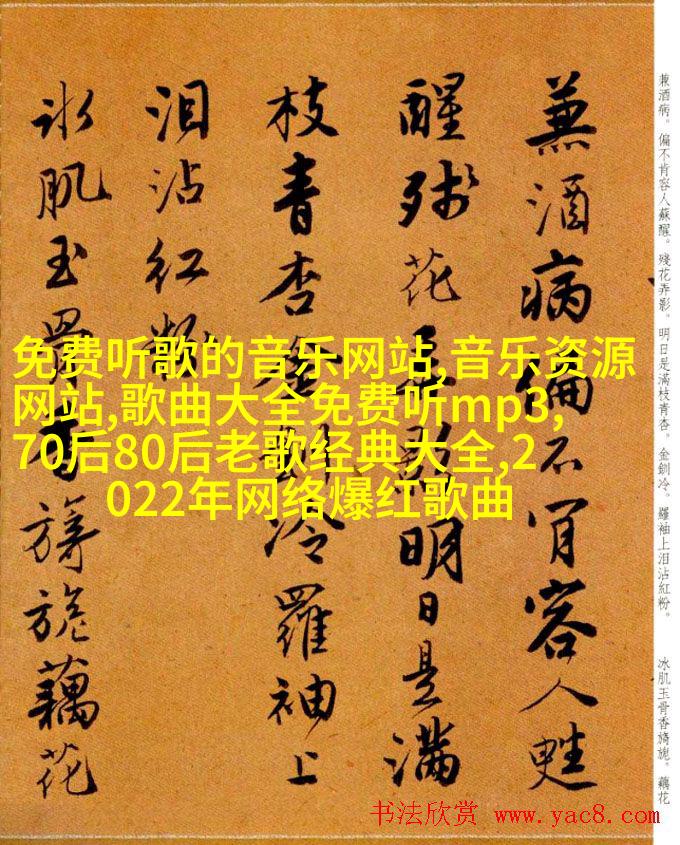 兼酒病。偏不肯容人蘇醒。殘花弄影。明日是滿枝青杏。金釧冷。羅袖上泪沾紅粉。
冰肌玉骨香旖旎。藕花
兼酒病偏不肯容人甦
醒殘花弄影明日是滿
枝青杏金釧冷羅袖上
泪沾红粉
冰肌玉骨香旖旎藕花
免费听歌的音乐网站,音乐资源
网站,歌曲大全免费听mp3,
70后80后老歌经典大全,2
022年网络爆红歌曲
书法欣赏 www.yac8.com